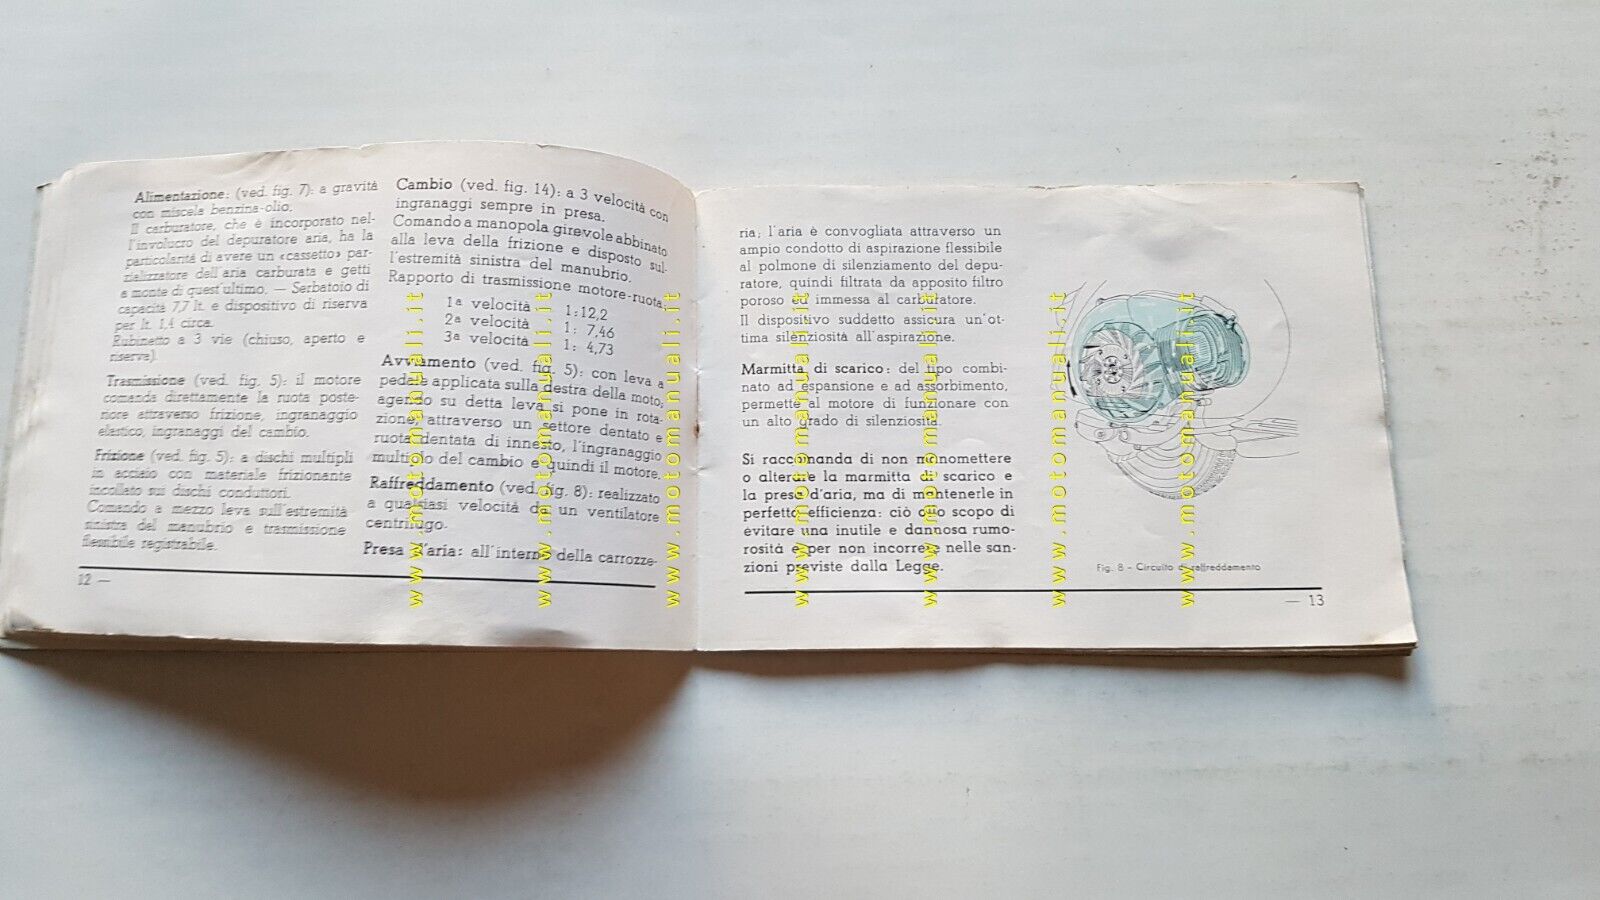 Alimentazione: (ved. fig. 7): a gravità
con miscela benzina-olio.
Il carburatore, che è incorporato nel-
l'involucro del depuratore aria, ha la
particolarità di avere un «cassetto» par-
zializzatore dell'aria carburata e getti
a monte di quest'ultimo. — Serbatoio di
capacità 7,7 lt. e dispositivo di riserva
per lt. 1,4 circa.
Rubinetto a 3 vie (chiuso, aperto e
riserva).
Trasmissione (ved. fig. 5): il motore
comanda direttamente la ruota poste-
riore attraverso frizione, ingranaggio
elastico, ingranaggi del cambio.
Frizione (ved. fig. 5): a dischi multipli
in acciaio con materiale frizionante
incollato sui dischi conduttori.
Comando a mezzo leva sull'estremità
sinistra del manubrio e trasmissione
flessibile registrabile.
12 —
Cambio (ved. fig. 14): a 3 velocità con
ingranaggi sempre in presa.
Comando a manopola girevole abbinato
alla leva della frizione e disposto sul-
l'estremità sinistra del manubrio.
Rapporto di trasmissione motore-ruota:
1ª velocità 1:12,2
2ª velocità 1: 7,46
3ª velocità 1: 4,73
Avviamento (ved. fig. 5): con leva a
pedale applicata sulla destra della moto,
agendo su detta leva si pone in rota-
zione, attraverso un settore dentato e
ruota dentata di innesto, l'ingranaggio
multiplo del cambio e quindi il motore.
Raffreddamento (ved. fig. 8): realizzato
a qualsiasi velocità da un ventilatore
centrifugo.
Presa d'aria: all'interno della carrozze-
ria; l'aria è convogliata attraverso un
ampio condotto di aspirazione flessibile
al polmone di silenziamento del depu-
ratore, quindi filtrata da apposito filtro
poroso ed immessa al carburatore.
Il dispositivo suddetto assicura un'ot-
tima silenziosità all'aspirazione.
Marmitta di scarico: del tipo combi-
nato ad espansione e ad assorbimento,
permette al motore di funzionare con
un alto grado di silenziosità.
Si raccomanda di non manomettere
o alterare la marmitta di scarico e
la presa d'aria, ma di mantenerle in
perfetta efficienza: ciò allo scopo di
evitare una inutile e dannosa rumo-
rosità e per non incorrere nelle san-
zioni previste dalla Legge.
Fig. 8 - Circuito di raffreddamento
— 13
www.motomanuali.it
www.motomanuali.it
www.motomanuali.it
www.motomanuali.it
www.motomanuali.it
www.motomanuali.it
www.motomanuali.it